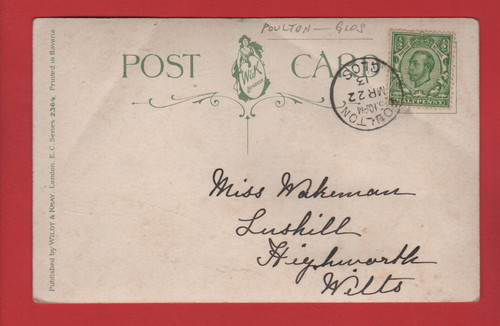 POULTON — GLOS
POST CARD
W&K
HALFPENNY
POULTON GLOS
MR 22
13
Miss Wakeman
Lushill
Highworth
Wilts
Published by WILDT & KRAY, London, E.C. Series 2364 Printed in Bavaria